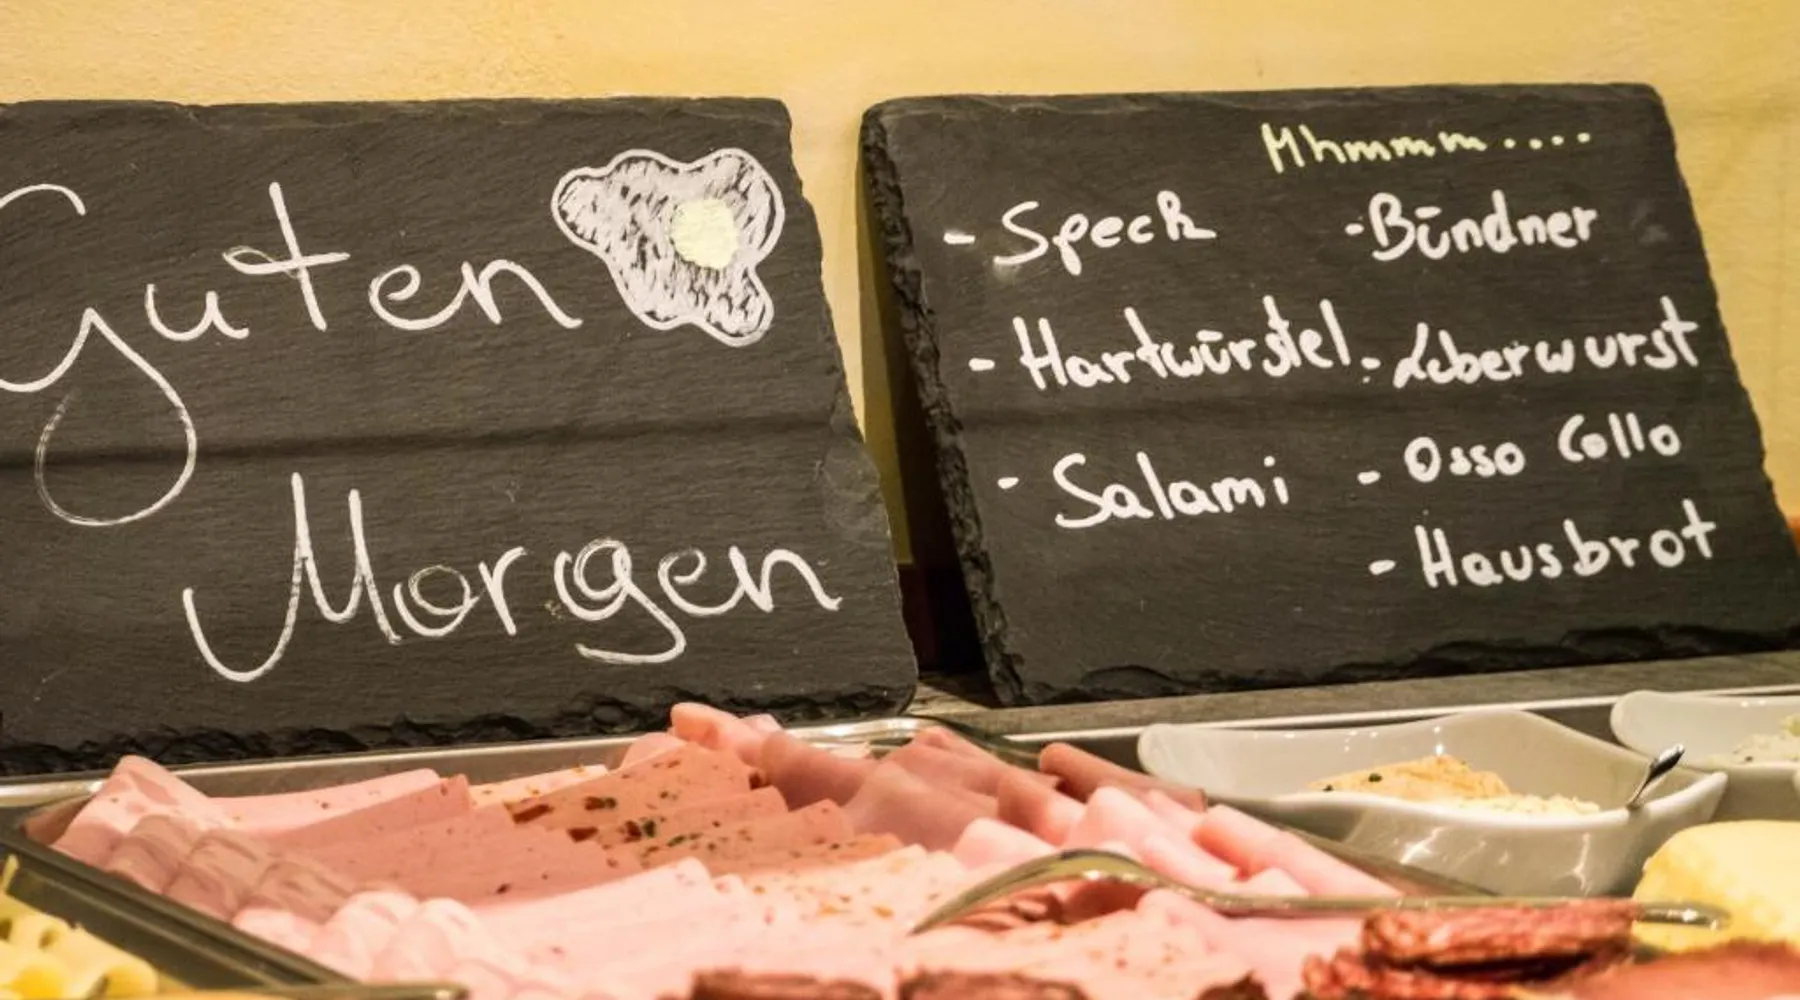 Guten
Morgen
Mhmmm....
- Speck
- Hartwürstel
- Salami
- Bündner
- Leberwurst
- Osso Collo
- Hausbrot